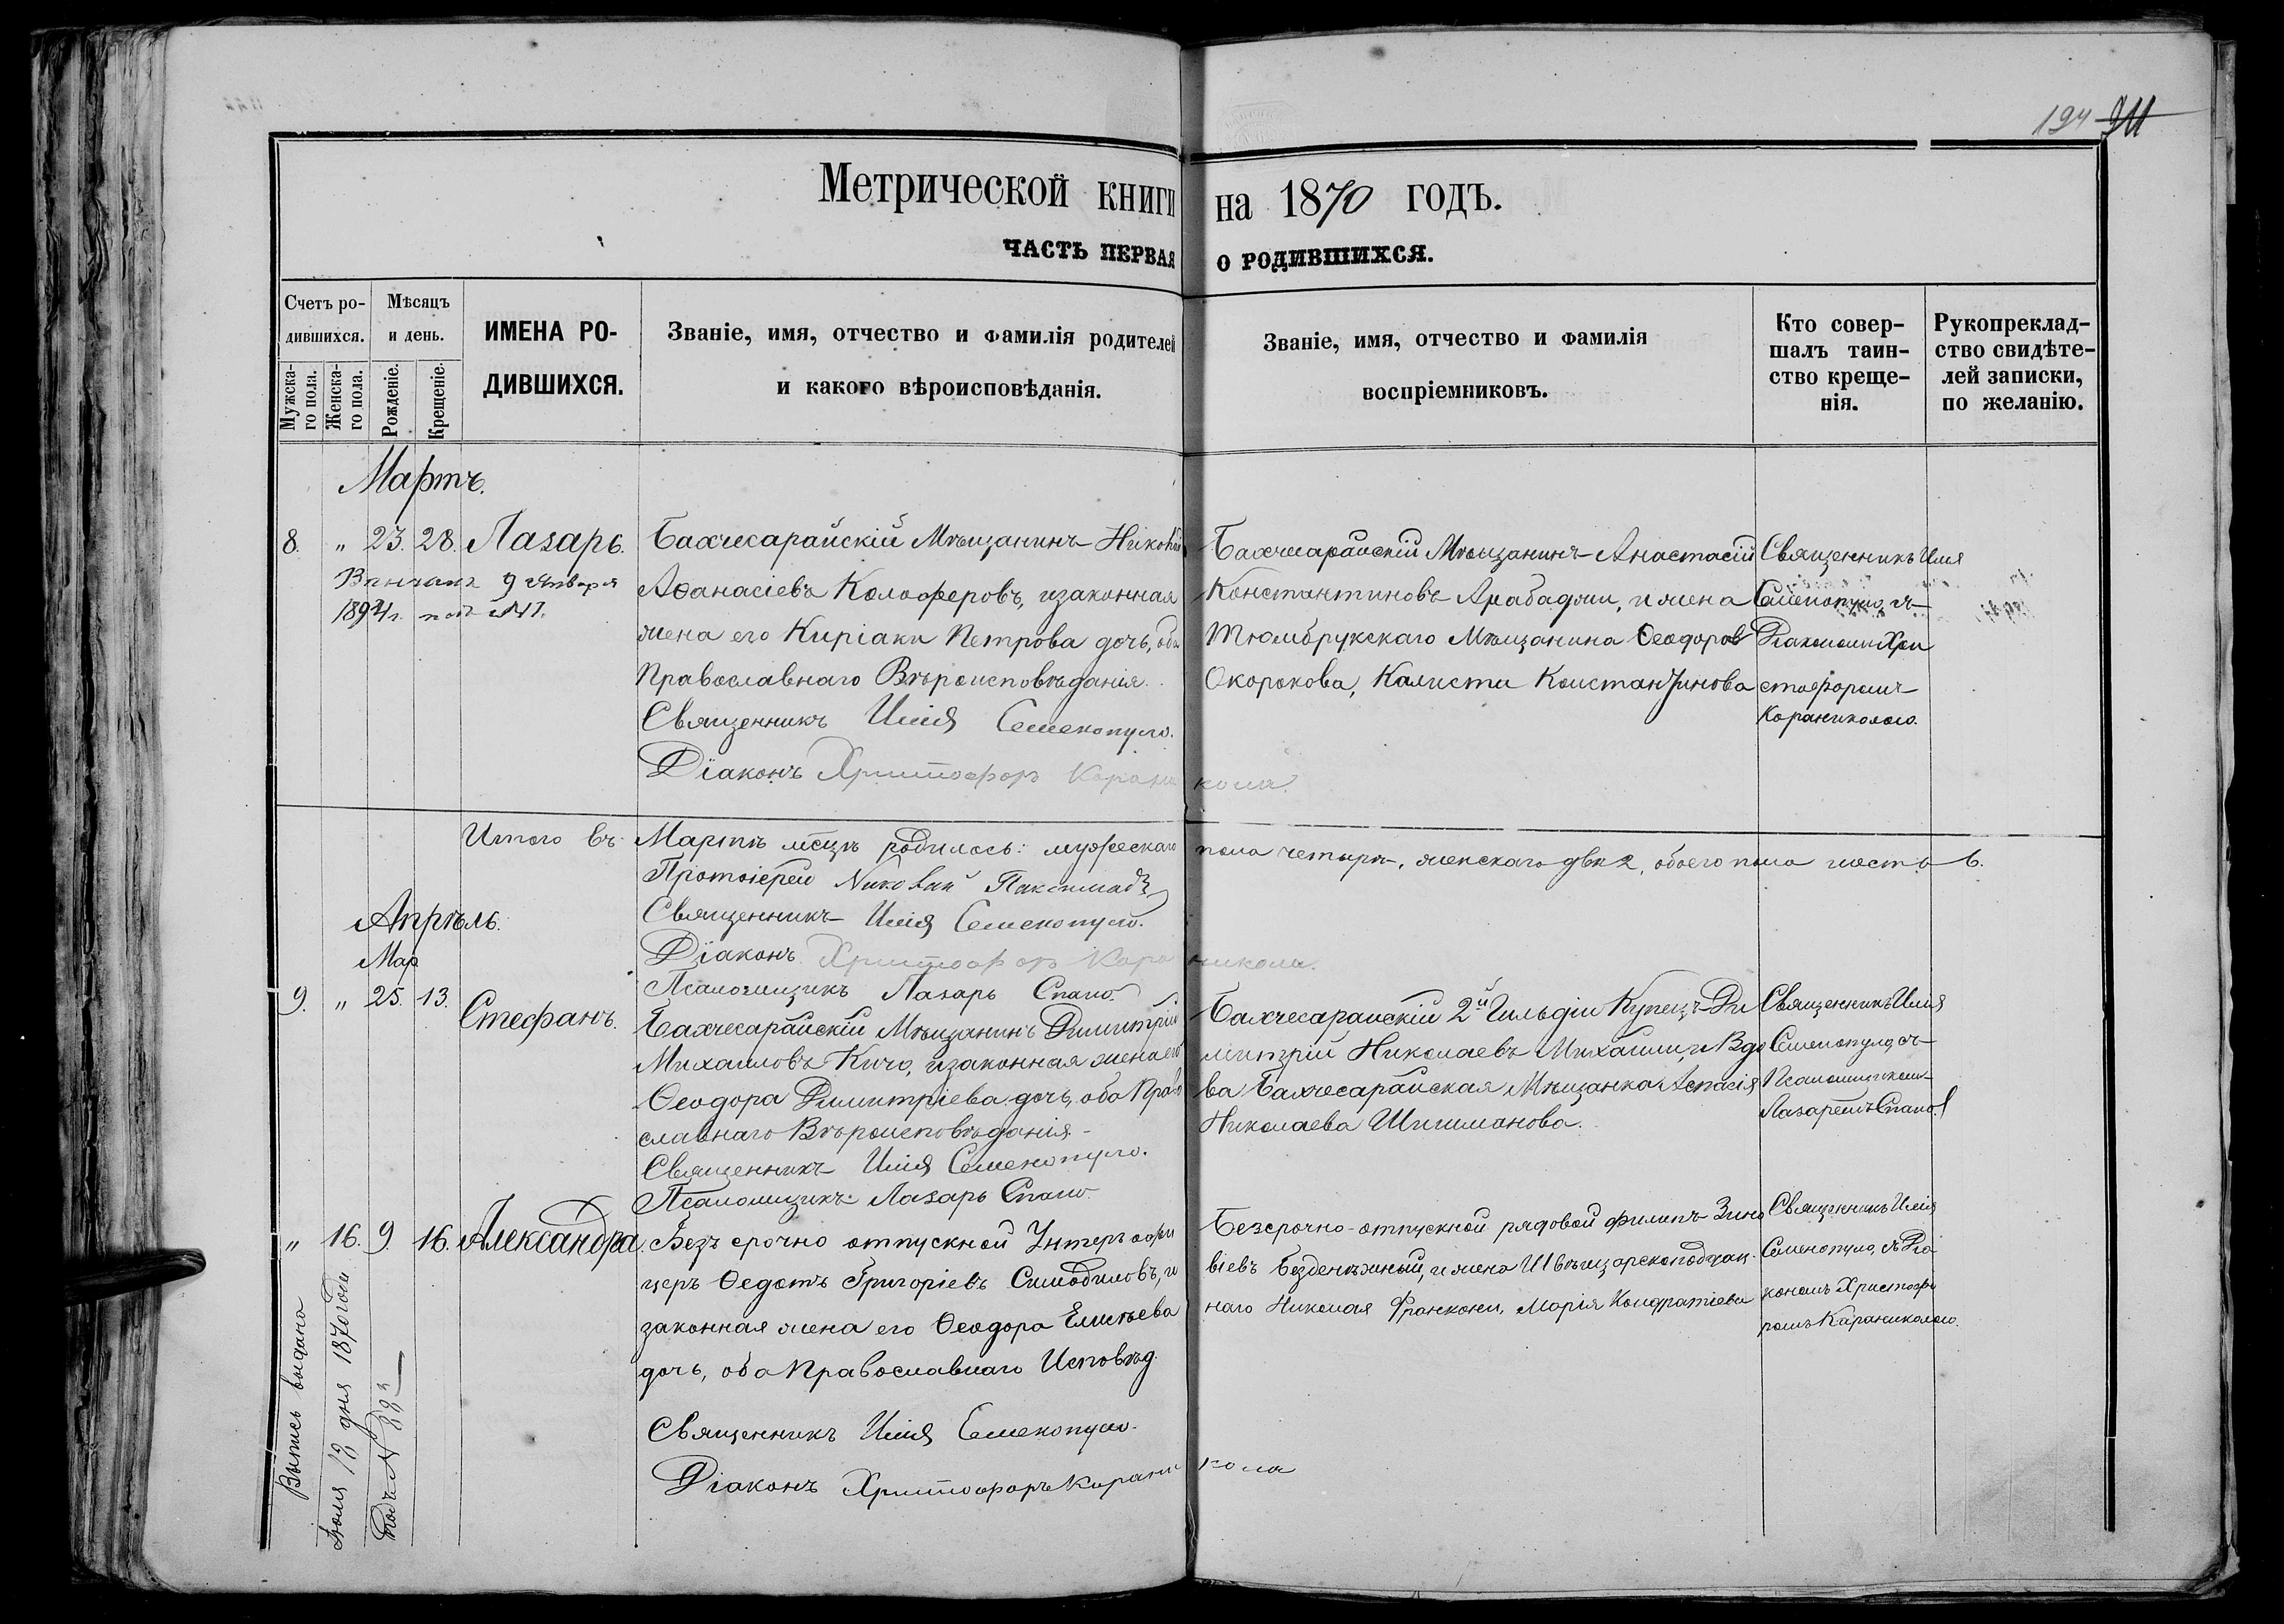 194 211
Метрической книги на 1870 годъ.
ЧАСТЬ ПЕРВАЯ О РОДИВШИХСЯ.
Счетъ ро-
дившихся.
Мужска-
го пола.
Женска-
го пола.
Мѣсяцъ
и день.
Рожденіе.
Крещеніе.
ИМЕНА РО-
ДИВШИХСЯ.
Званіе, имя, отчество и фамилія родителей
и какого вѣроисповѣданія.
Званіе, имя, отчество и фамилія
воспріемниковъ.
Кто совер-
шалъ таин-
ство креще-
нія.
Рукоприклад-
ство свидѣте-
лей записки,
по желанію.
Мартъ.
8. " 23. 28. Лазарь.
Вѣнчанъ 9 Января
1894 г. подъ №1.
Бахчесарайскій Мѣщанинъ Николай
Аѳанасіевъ Калафетовъ, и законная
жена его Киріаки Петрова дочь, оба
Православнаго Вѣроисповѣданія.
Священникъ Илія Семенопуло.
Діаконъ Христофоръ Караникола.
Бахчисарайскій Мѣщанинъ Анастасій
Константиновъ Арабаджи, и жена
Тюмбрукскаго Мѣщанина Ѳеодоров
Окорокова, Калисти Константинова
Священникъ Илія
Семенопуло, съ
Діакономъ Хри
стофоромъ
Караниколою.
Итого въ Мартѣ мсцѣ родилось: мужескаго пола четыре, женскаго двѣ 2, обоего пола шесть 6.
Протоіерей Николай Паксимадъ
Священникъ Илія Семенопуло.
Діаконъ Христофоръ Караникола.
Псаломщикъ Лазарь Спано.
Апрѣль.
Мар
9. " 25. 13. Стефанъ.
Бахчесарайскій Мѣщанинъ Димитрій
Михаиловъ Кичо, и законная жена его
Ѳеодора Димитріева дочь, оба Право
славнаго Вѣроисповѣданія.
Священникъ Илія Семенопуло.
Псаломщикъ Лазарь Спано.
Бахчесарайскій 2й Гильдіи Купецъ Ди
митрій Николаевъ Михайли, и Вдо
ва Бахчесарайская Мѣщанка Аспасія
Николаева Шишманова.
Священникъ Илія
Семенопуло, съ
Псаломщикомъ
Лазаремъ Спано.
" 16. 9. 16. Александра.
Безъ срочно отпускной Унтеръ офи
церъ Ѳедотъ Григоріевъ Самодиловъ, и
законная жена его Ѳеодора Елисѣева
дочь, оба Православнаго Исповѣд.
Священникъ Илія Семенопуло.
Діаконъ Христофоръ Караникола
Безсрочно-отпускной рядовой Филипъ Зино
віевъ Безденежный, и жена Швейцарскоподдан
наго Николая Франкони, Марія Кондратіева
Священникъ Илія
Семенопуло, съ Діа
кономъ Христофо
ромъ Караниколою.
Выпись выдана
Іюля 18 дня 1870 года
подъ № 883